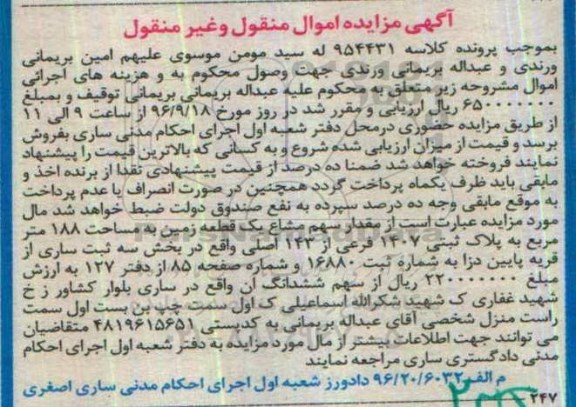 آگهی مزایده اموال منقول وغیر منقول
بموجب پرونده کلاسه ۹۵۴۴۳۱ له سید مومن موسوی علیهم امین بریمانی
ورندی و عبداله بریمانی ورندی جهت وصول محکوم به و هزینه های اجرائی
اموال مشروحه زیر متعلق به محکوم علیه عبداله بریمانی بریمانی توقیف و بمبلغ
۶۵۰۰۰۰۰۰۰۰ ریال ارزیابی و مقرر شد در روز مورخ ۹۶/۹/۱۸ از ساعت ۹ الی ۱۱
از طریق مزایده حضوری درمحل دفتر شعبه اول اجرای احکام مدنی ساری بفروش
برسد و قیمت از میزان ارزیابی شده شروع و به کسانی که بالاترین قیمت را پیشنهاد
نمایند فروخته خواهد شد ضمنا ده درصد از قیمت پیشنهادی نقدا از برنده اخذ و
مابقی باید ظرف یکماه پرداخت گردد همچنین در صورت انصراف یا عدم پرداخت
به موقع مابقی وجه ده درصد سپرده به نفع صندوق دولت ضبط خواهد شد مال
مورد مزایده عبارت است از مقدار سهم مشاع یک قطعه زمین به مساحت ۱۸۸ متر
مربع به پلاک ثبتی ۱۴۰۷ فرعی از ۱۴۳ اصلی واقع در بخش سه ثبت ساری از
قریه پایین دزا به شماره ثبت ۱۶۸۸۰ و شماره صفحه ۸۵ از دفتر ۱۲۷ به ارزش
مبلغ ۲۲۰۰۰۰۰۰۰۰ ریال از سهم ششدانگ ان واقع در ساری بلوار کشاور ز خ
شهید غفاری ک شهید شکرالله اسماعیلی ک اول سمت چپ بن بست اول سمت
راست منزل شخصی آقای عبداله بریمانی به کدپستی ۴۸۱۹۶۱۵۶۵۱ متقاضیان
می توانند جهت اطلاعات بیشتر از مال مورد مزایده به دفتر شعبه اول اجرای احکام
مدنی دادگستری ساری مراجعه نمایند
م الف ۹۶/۲۰/۶۰۳۲ دادورز شعبه اول اجرای احکام مدنی ساری اصغری
۲۴۷